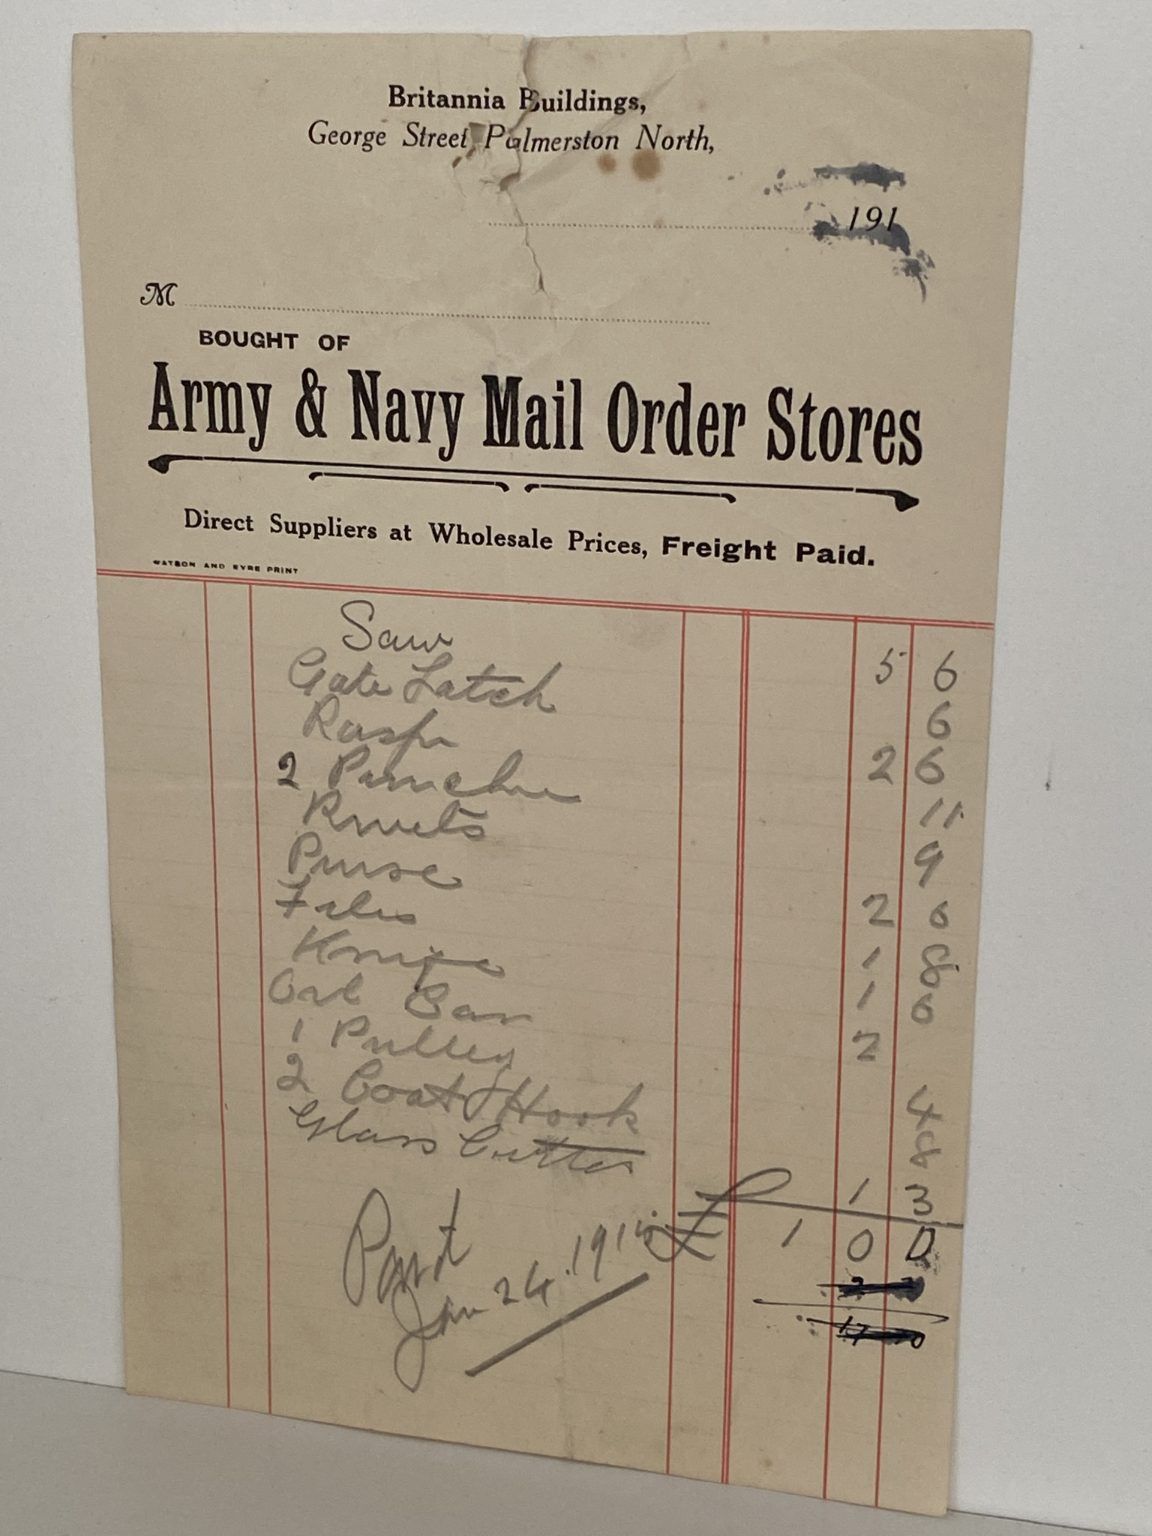 Britannia Buildings,
George Street, Palmerston North,
191
M
BOUGHT OF
Army & Navy Mail Order Stores
Direct Suppliers at Wholesale Prices, Freight Paid.
WATSON AND EYRE PRINT
Saw 5 6
Gate Latch 6
Rasp 2 6
2 Punches 11
Rivets 9
Purse 2 6
Files 1 8
Knife 1 6
Oil Can 2
1 Pulley 4
2 Coat & Hook 8
Glass Cutter 1 3
£ 1 0 0
Paid
Jan 24. 1915